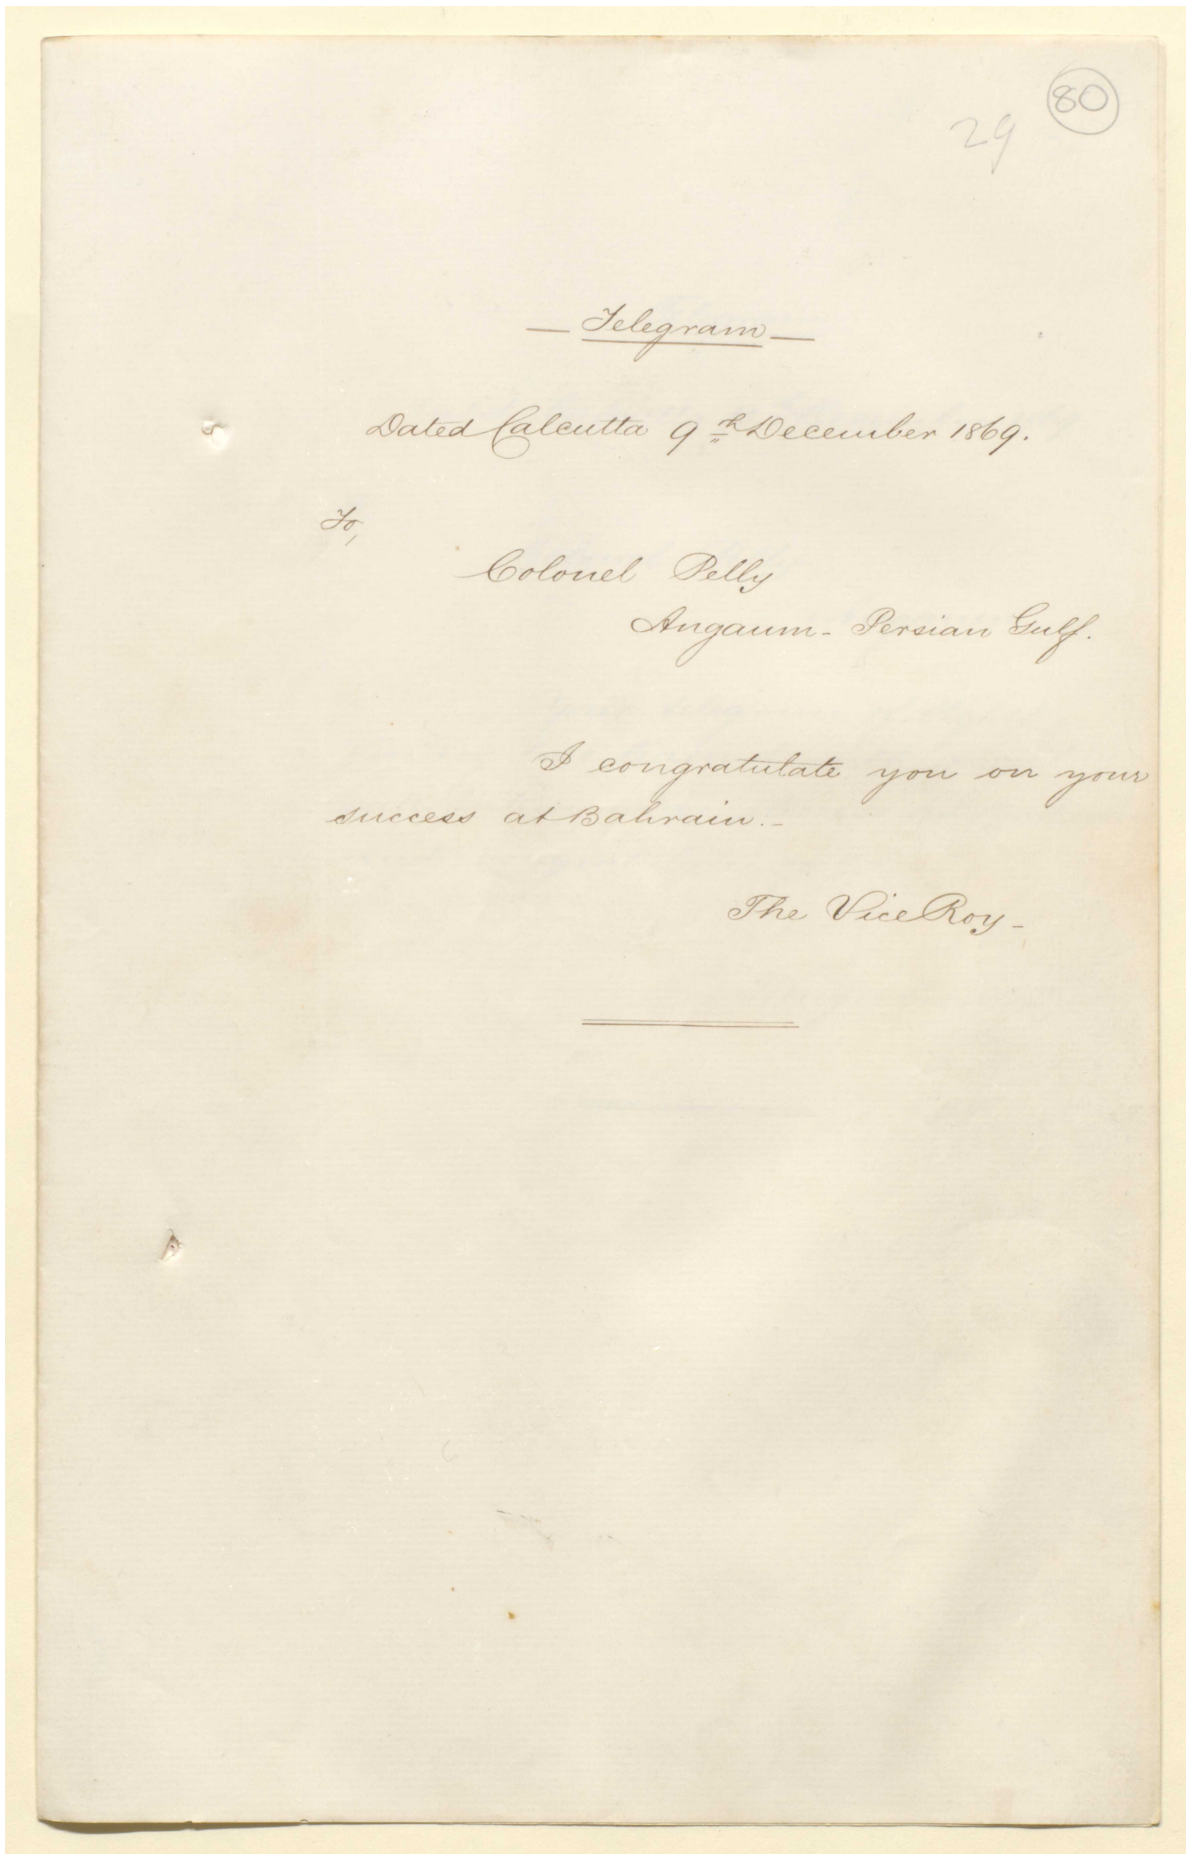 80
29
— Telegram —
Dated Calcutta 9th December 1869.
To,
Colonel Pelly
Angaum - Persian Gulf.
I congratulate you on your
success at Bahrain. -
The ViceRoy -